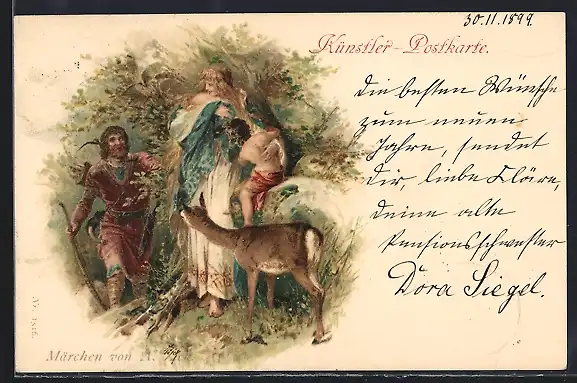 30.11.1899.
Künstler-Postkarte.
Die besten Wünsche
zum neuen
Jahre, sendet
Dir, liebe Kläre,
deine alte
Pensionsschwester
Dora Siegel.
Nr. 1816.
Märchen von A.